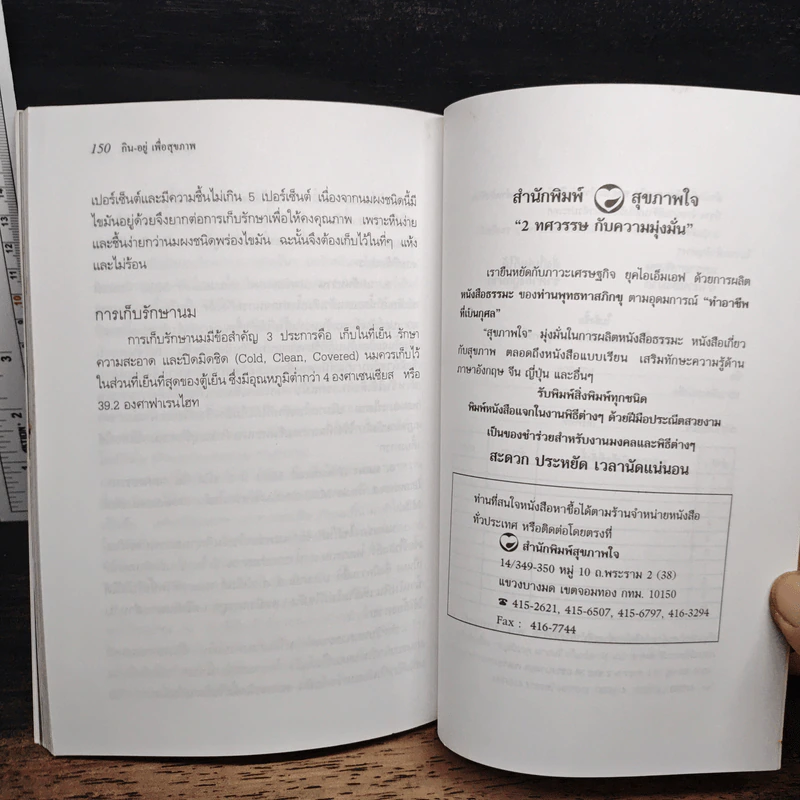 150 กิน-อยู่ เพื่อสุขภาพ
เปอร์เซ็นต์และมีความชื้นไม่เกิน 5 เปอร์เซ็นต์ เนื่องจากนมผงชนิดนี้มี
ไขมันอยู่ด้วยจึงยากต่อการเก็บรักษาเพื่อให้คงคุณภาพ เพราะหืนง่าย
และชื้นง่ายกว่านมผงชนิดพร่องไขมัน ฉะนั้นจึงต้องเก็บไว้ในที่ๆ แห้ง
และไม่ร้อน
การเก็บรักษานม
การเก็บรักษานมมีข้อสำคัญ 3 ประการคือ เก็บในที่เย็น รักษา
ความสะอาด และปิดมิดชิด (Cold, Clean, Covered) นมควรเก็บไว้
ในส่วนที่เย็นที่สุดของตู้เย็น ซึ่งมีอุณหภูมิต่ำกว่า 4 องศาเซนเซียส หรือ
39.2 องศาฟาเรนไฮท
สำนักพิมพ์ สุขภาพใจ
“2 ทศวรรษ กับความมุ่งมั่น”
เรายืนหยัดกับภาวะเศรษฐกิจ ยุคไอเอ็มเอฟ ด้วยการผลิต
หนังสือธรรมะ ของท่านพุทธทาสภิกขุ ตามอุดมการณ์ “ทำอาชีพ
ที่เป็นกุศล”
“สุขภาพใจ” มุ่งมั่นในการผลิตหนังสือธรรมะ หนังสือเกี่ยว
กับสุขภาพ ตลอดถึงหนังสือแบบเรียน เสริมทักษะความรู้ด้าน
ภาษาอังกฤษ จีน ญี่ปุ่น และอื่นๆ
รับพิมพ์สิ่งพิมพ์ทุกชนิด
พิมพ์หนังสือแจกในงานพิธีต่างๆ ด้วยฝีมือประณีตสวยงาม
เป็นของชำร่วยสำหรับงานมงคลและพิธีต่างๆ
สะดวก ประหยัด เวลานัดแน่นอน
ท่านที่สนใจหนังสือหาซื้อได้ตามร้านจำหน่ายหนังสือ
ทั่วประเทศ หรือติดต่อโดยตรงที่
สำนักพิมพ์สุขภาพใจ
14/349-350 หมู่ 10 ถ.พระราม 2 (38)
แขวงบางมด เขตจอมทอง กทม. 10150
☎ 415-2621, 415-6507, 415-6797, 416-3294
Fax : 416-7744